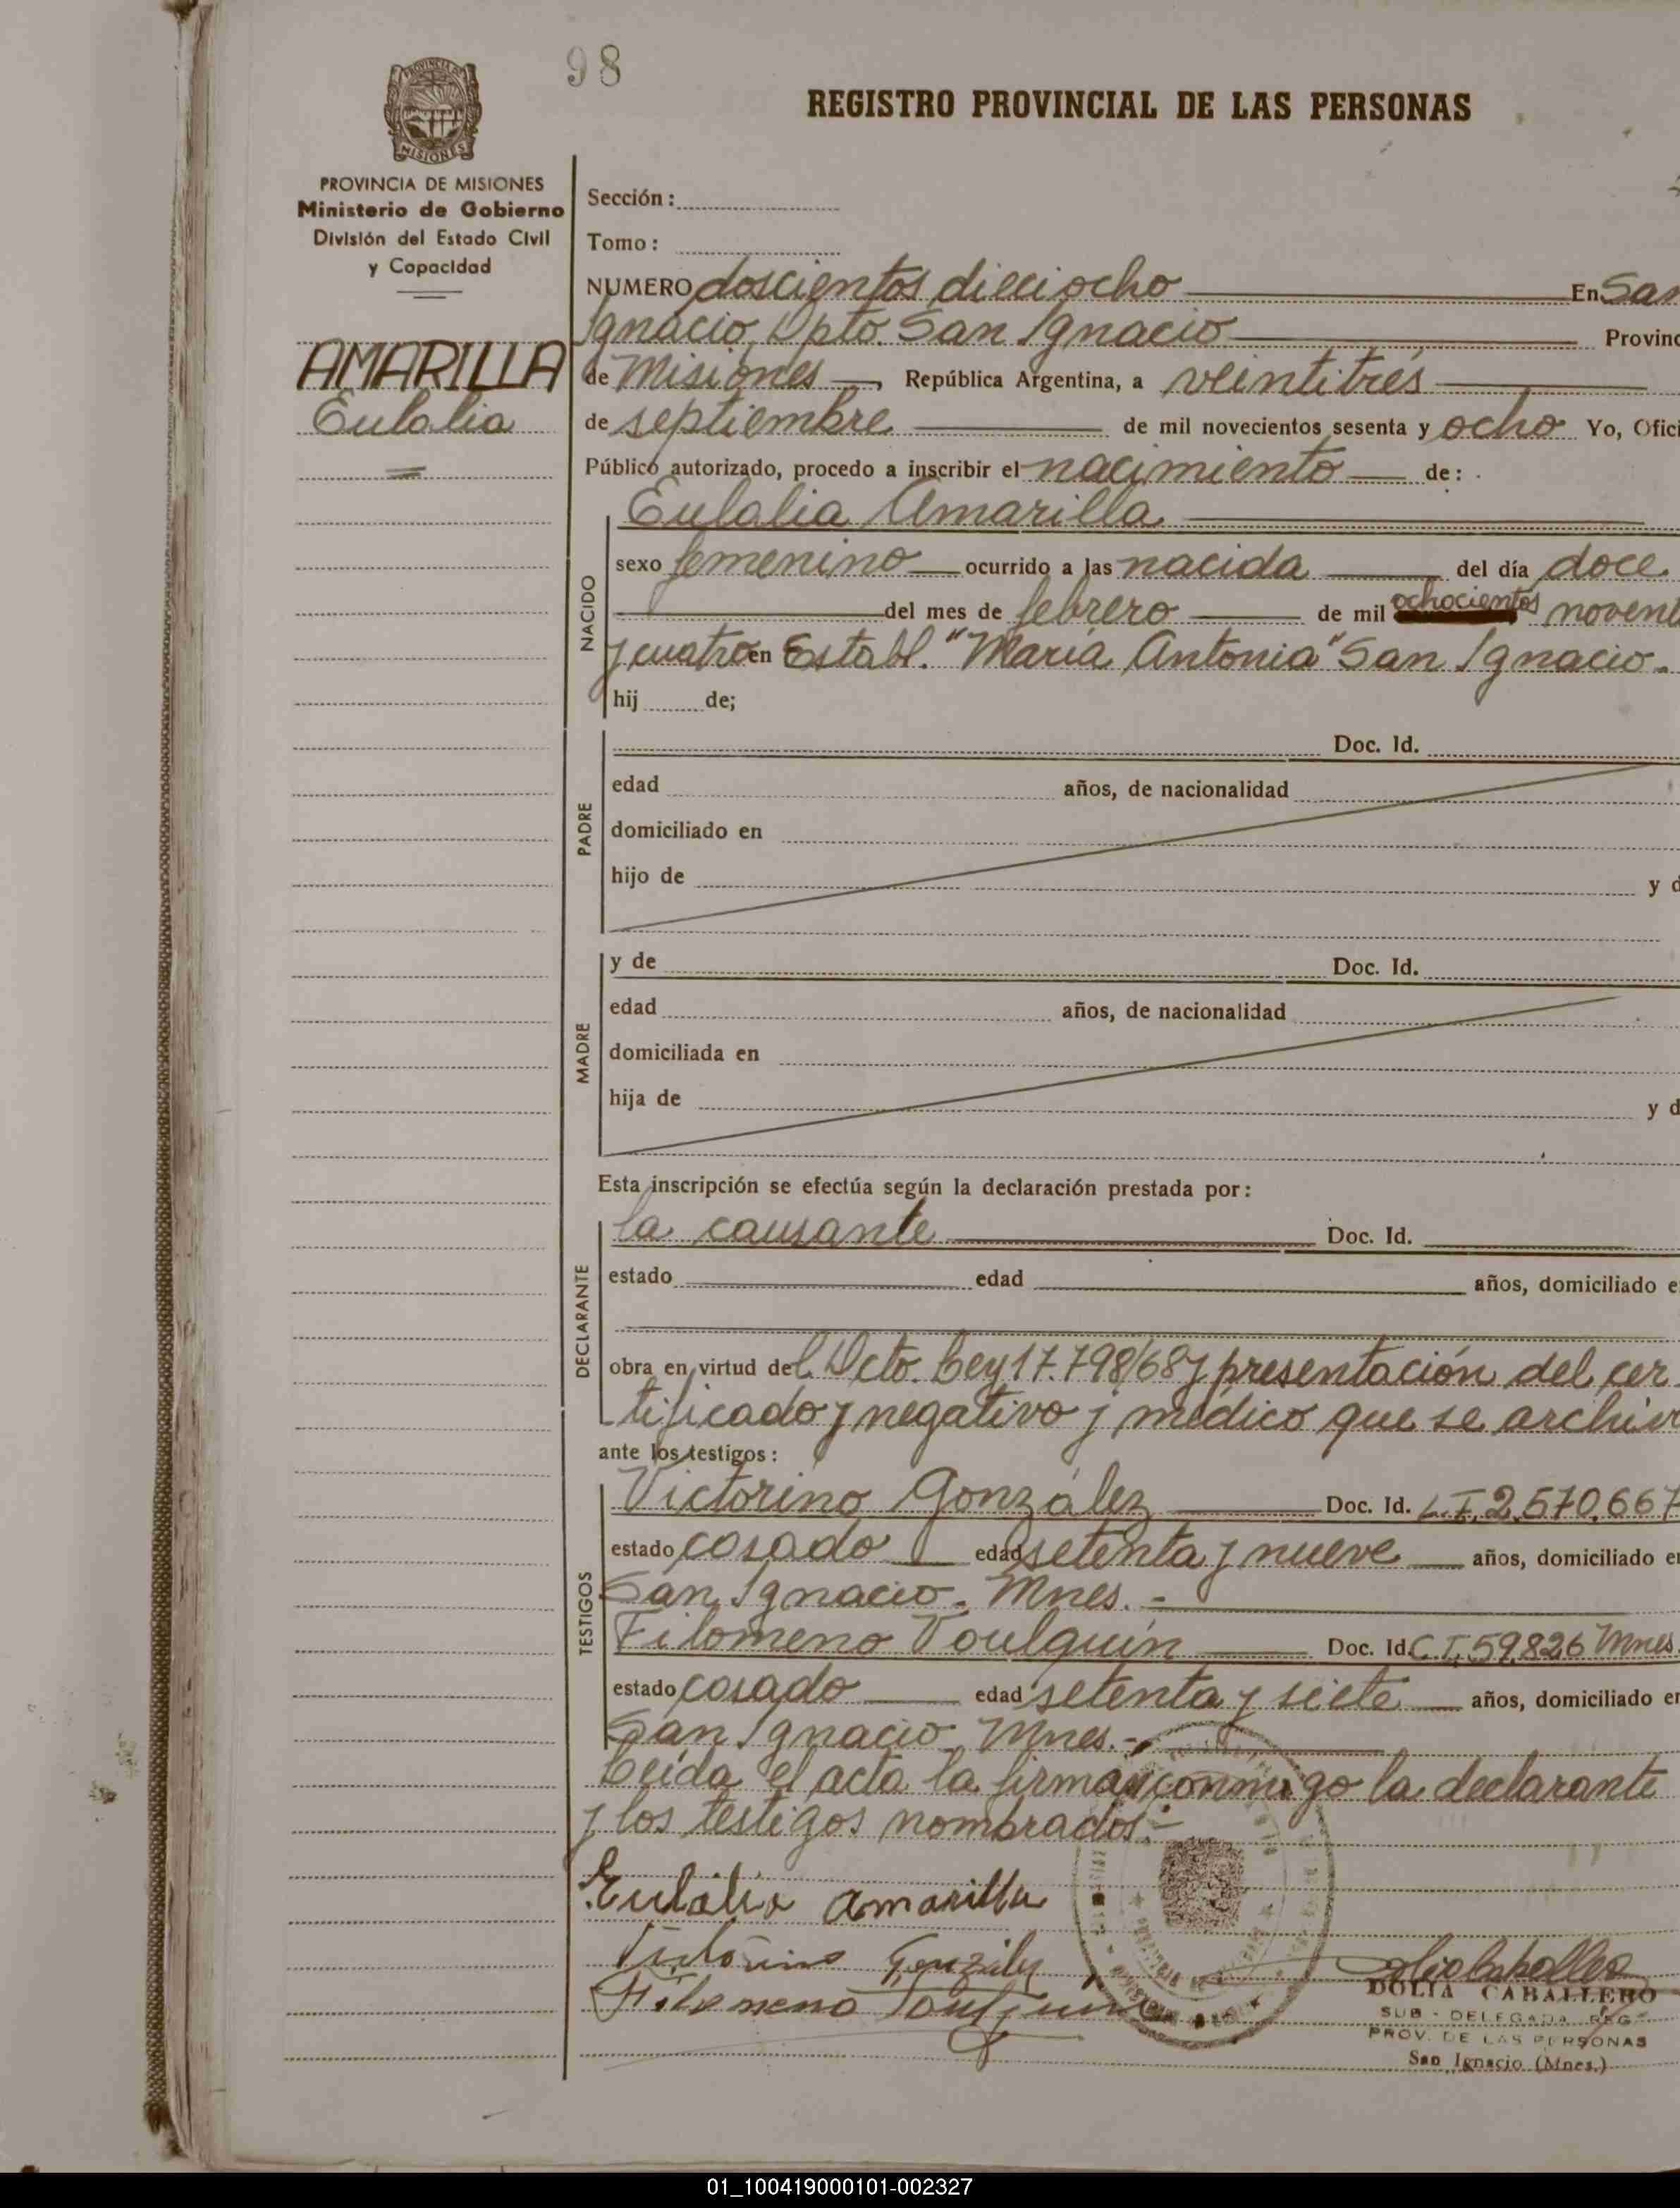 98
REGISTRO PROVINCIAL DE LAS PERSONAS
PROVINCIA DE MISIONES
Ministerio de Gobierno
División del Estado Civil
y Capacidad
AMARILLA
Eulalia
Sección:
Tomo:
NUMERO doscientos dieciocho En San
Ignacio, Dpto. San Ignacio Provinc
de Misiones, República Argentina, a veintitrés
de septiembre de mil novecientos sesenta y ocho Yo, Ofici
Público autorizado, procedo a inscribir el nacimiento de:
NACIDO
Eulalia Amarilla
sexo femenino ocurrido a las nacida del día doce
del mes de febrero de mil ochocientos novent
y cuatro en Establ. "María Antonia" San Ignacio.
hij de;
PADRE
Doc. Id.
edad años, de nacionalidad
domiciliado en
hijo de y d
MADRE
y de Doc. Id.
edad años, de nacionalidad
domiciliada en
hija de y d
Esta inscripción se efectúa según la declaración prestada por:
DECLARANTE
la causante Doc. Id.
estado edad años, domiciliado e
obra en virtud del Dcto. Ley 17.798/68 y presentación del cer
tificado y negativo y médico que se archiv
ante los testigos:
TESTIGOS
Victorino González Doc. Id. L.I. 2.570.667
estado casado edad setenta y nueve años, domiciliado en
San Ignacio. Mnes.-
Filomeno Toulquin Doc. Id. C.I. 59.826 Mnes.
estado casado edad setenta y siete años, domiciliado en
San Ignacio, Mnes.-
Leída el acta la firman conmigo la declarante
y los testigos nombrados.-
Eulalia amarilla
Victorino Gonzalez
Filomeno Toulquin
DOLIA CABALLERO
SUB - DELEGADA REG
PROV. DE LAS PERSONAS
San Ignacio (Mnes.)
01_100419000101-002327